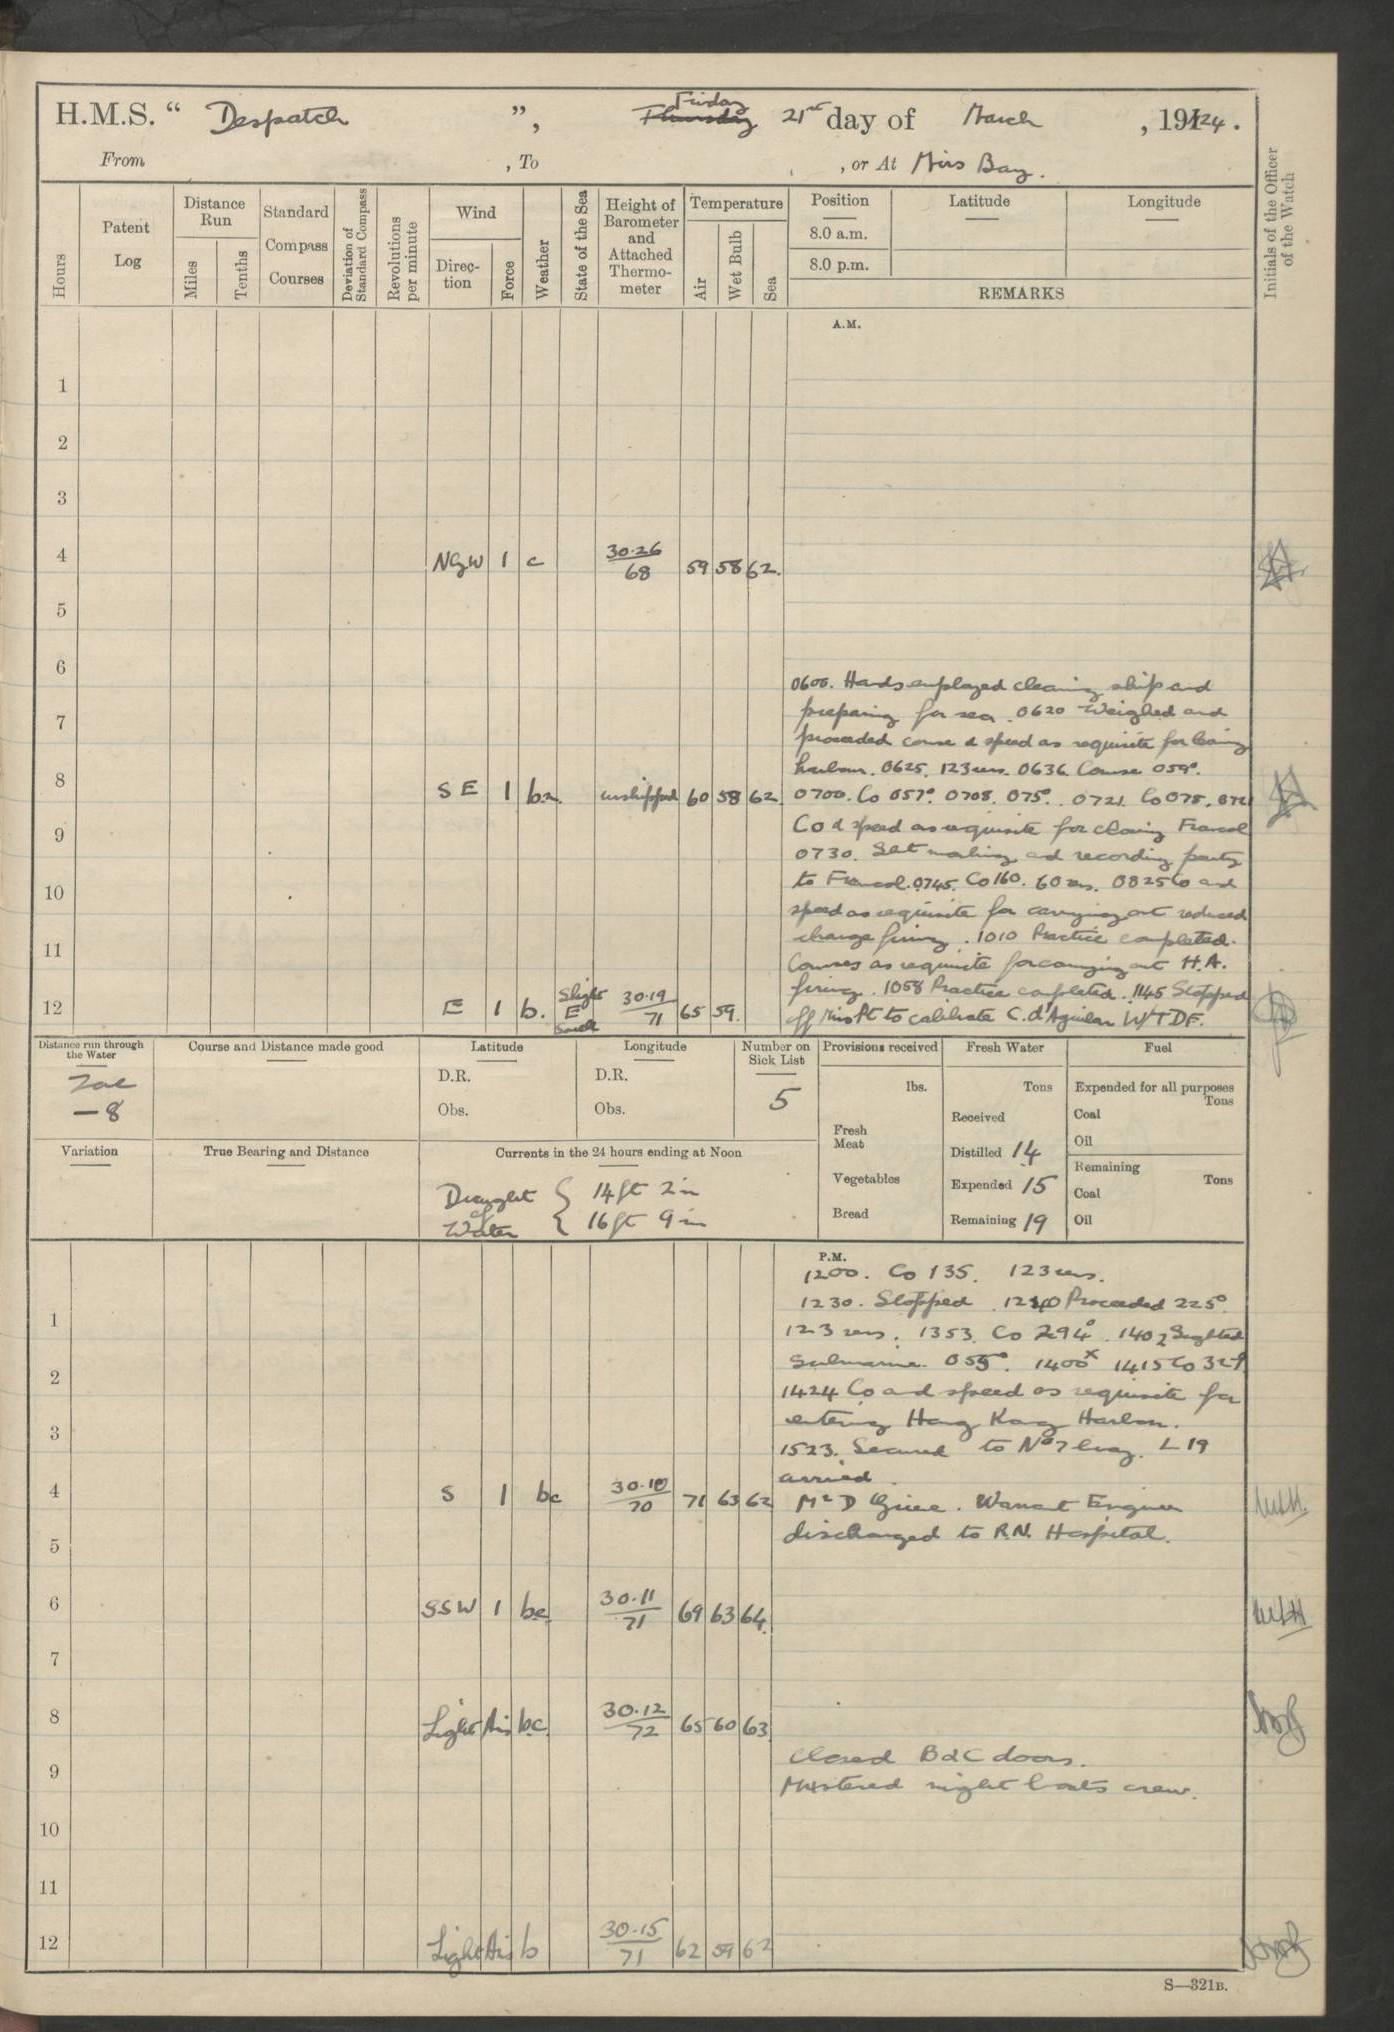 H.M.S. “ Despatch ”, Friday 21st day of March , 1924.
From , To , or At Mirs Bay.
Hours
Patent Log
Distance Run
Miles
Tenths
Standard Compass Courses
Deviation of Standard Compass
Revolutions per minute
Wind
Direction
Force
Weather
State of the Sea
Height of Barometer and Attached Thermometer
Temperature
Air
Wet Bulb
Sea
Position
8.0 a.m.
8.0 p.m.
Latitude
Longitude
REMARKS
Initials of the Officer of the Watch
A.M.
1
2
3
4 NGW 1 c 30.26/68 59 58 62.
5
6
0600. Hands employed cleaning ship and
7 preparing for sea. 0620 Weighed and
proceeded course & speed as requisite for leaving
harbour. 0625. 123 revs. 0636 Course 059°.
8 SE 1 bz. unshipped 60 58 62 0700. Co 057°. 0708. 075°. 0721. Co 078.
9 Co & speed as requisite for closing
0730. Sent marking and recording party
10 to 0745. Co 160. 60 revs. 0825 Co and
speed as requisite for carrying out reduced
11 charge firing. 1010 Practice completed.
Courses as requisite for carrying out H.A.
firing. 1058 Practice completed. 1145 Stopped
12 E 1 b. Slight E 30.19/71 65 59. off to calibrate C. d'Aguilar W/T D.F.
Distance run through the Water
Zac
—8
Course and Distance made good
Latitude
D.R.
Obs.
Longitude
D.R.
Obs.
Number on Sick List
5
Provisions received
lbs.
Fresh Meat
Vegetables
Bread
Fresh Water
Tons
Received
Distilled 14
Expended 15
Remaining 19
Fuel
Expended for all purposes
Tons
Coal
Oil
Remaining
Tons
Coal
Oil
Variation
True Bearing and Distance
Currents in the 24 hours ending at Noon
Draught of Water { 14 ft 2 in
16 ft 9 in
P.M.
1200. Co 135. 123 revs.
1 1230. Stopped. 1240 Proceeded 225°.
123 revs. 1353. Co 294°. 1402 Sighted
Submarine 055°. 1400x 1415 Co
2 1424 Co and speed as requisite for
3 entering Hong Kong Harbour.
1523. Secured to No 7 buoy. L 19
arrived.
4 S 1 bc 30.10/70 71 63 62 Mr D Warrant Engineer
5 discharged to R.N. Hospital.
6 SSW 1 bc 30.11/71 69 63 64.
7
8 Light Airs bc. 30.12/72 65 60 63
Closed B & C doors.
9 Mustered night boats crew.
10
11
12 Light Airs b 30.15/71 62 59 62
S—321B.